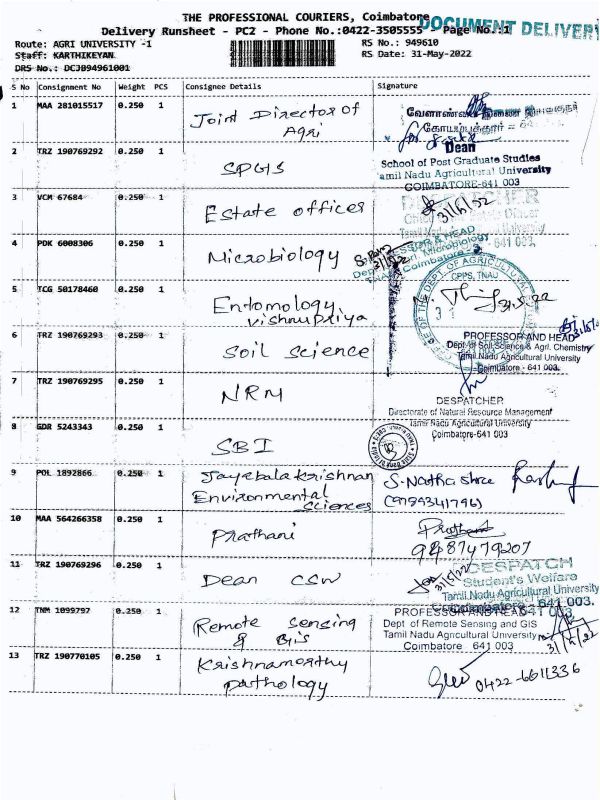 THE PROFESSIONAL COURIERS, Coimbatore
DOCUMENT DELIVERY
Delivery Runsheet - PC2 - Phone No.:0422-3505555 Page No.:1
Route: AGRI UNIVERSITY -1
RS No.: 949610
Staff: KARTHIKEYAN.
RS Date: 31-May-2022
DRS No.: DCJB94961001
S No Consignment No Weight PCS Consignee Details Signature
1 MAA 281015517 0.250 1 Joint Director of
Agri
2 TRZ 190769292 0.250 1 SPGS
Dean
School of Post Graduate Studies
Tamil Nadu Agricultural University
COIMBATORE-641 003
3 VCM 67684 0.250 1 Estate officer
DESPATCHER
Tamil Nadu Agricultural University
641 003,
4 PDK 6008306 0.250 1 Microbiology
5 TCG 50178460 0.250 1 Entomology
Vishnu Priya
CPPS, TNAU
6 TRZ 190769293 0.250 1 Soil science
PROFESSOR AND HEAD
Dept. of Soil Science & Agrl. Chemistry
Tamil Nadu Agricultural University
Coimbatore - 641 003.
7 TRZ 190769295 0.250 1 NRM
DESPATCHER
Directorate of Natural Resource Management
Tamil Nadu Agricultural University
Coimbatore-641 003
8 GDR 5243343 0.250 1 SBI
9 POL 1892866 0.250 1 Jayabalakrishnan
Environmental
Sciences
10 MAA 564266358 0.250 1 Prathani
9487479207
11 TRZ 190769296 0.250 1 Dean CSW
DESPATCH
Student's Welfare
Tamil Nadu Agricultural University
Coimbatore - 641 003.
12 TNM 1099797 0.250 1 Remote Sensing
& GIS
PROFESSOR AND HEAD
Dept of Remote Sensing and GIS
Tamil Nadu Agricultural University
Coimbatore 641 003
13 TRZ 190770105 0.250 1 Krishnamorthy
pathology
0422-6611336